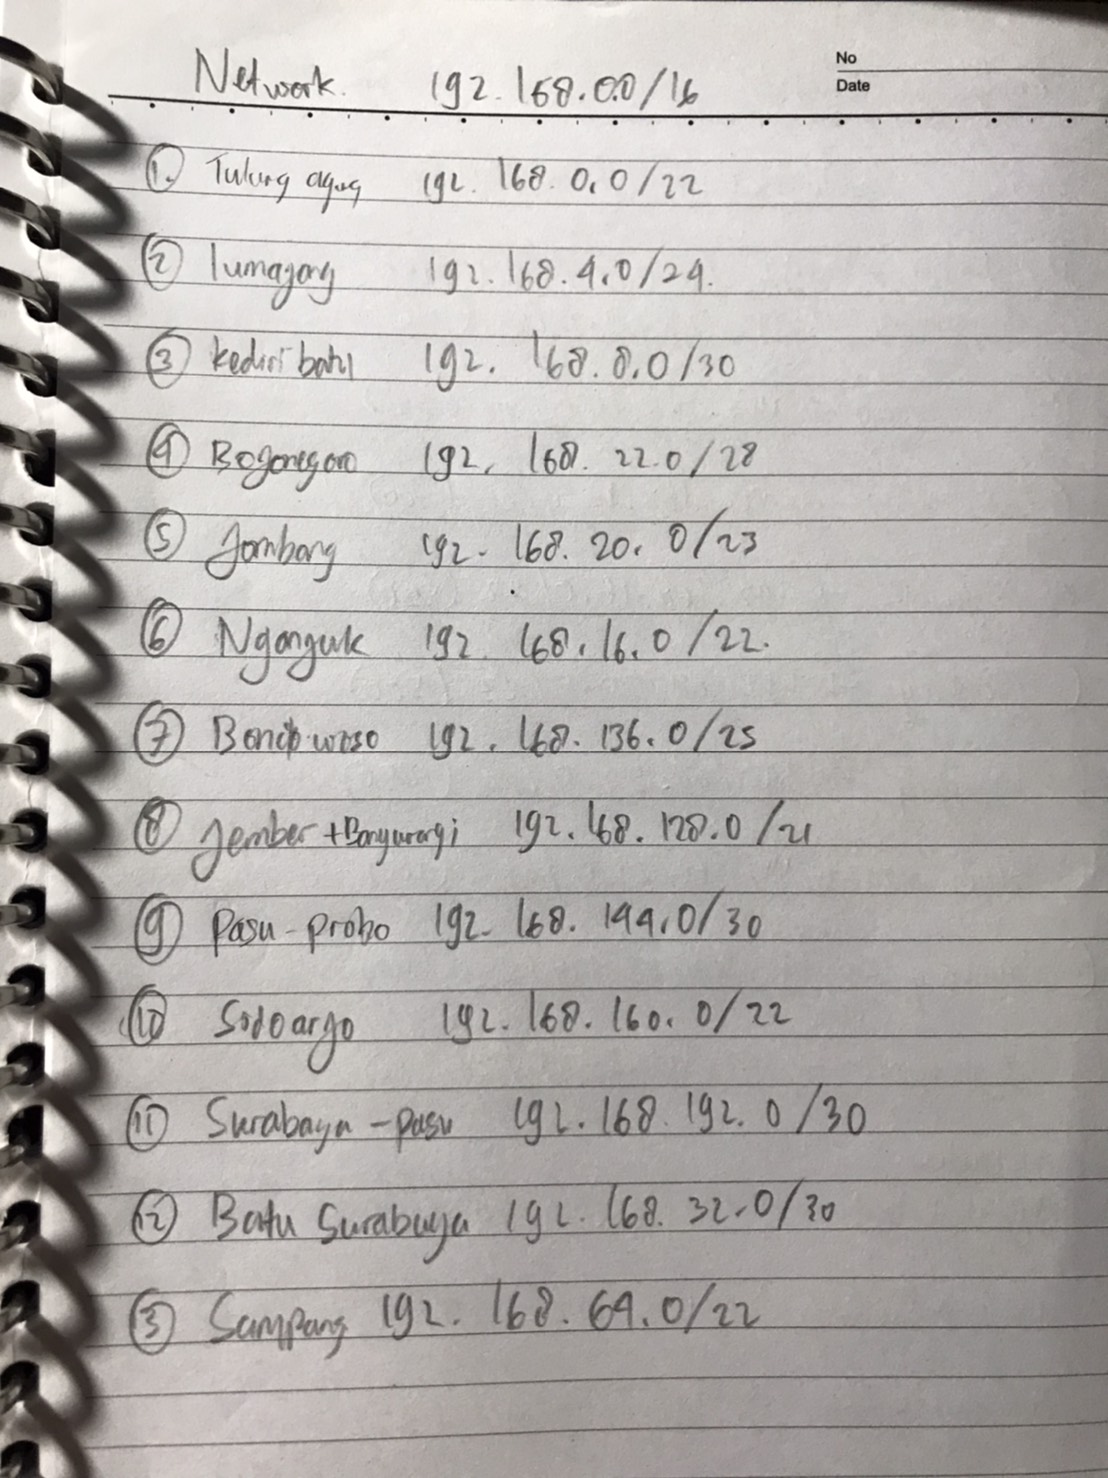 No
Date
Network. 192.168.0.0/16
① Tulung agung 192.168.0.0/22
② lumajang 192.168.4.0/24.
③ kediri batu 192.168.8.0/30
④ Bojonegoro 192.168.22.0/28
⑤ Jombang 192.168.20.0/23
⑥ Nganjuk 192.168.16.0/22.
⑦ Bondowoso 192.168.136.0/25
⑧ Jember + Banyuwangi 192.168.128.0/21
⑨ Pasu - probo 192.168.144.0/30
⑩ Sidoarjo 192.168.160.0/22
⑪ Surabaya - pasu 192.168.192.0/30
⑫ Batu Surabaya 192.168.32.0/30
⑬ Sampang 192.168.64.0/22